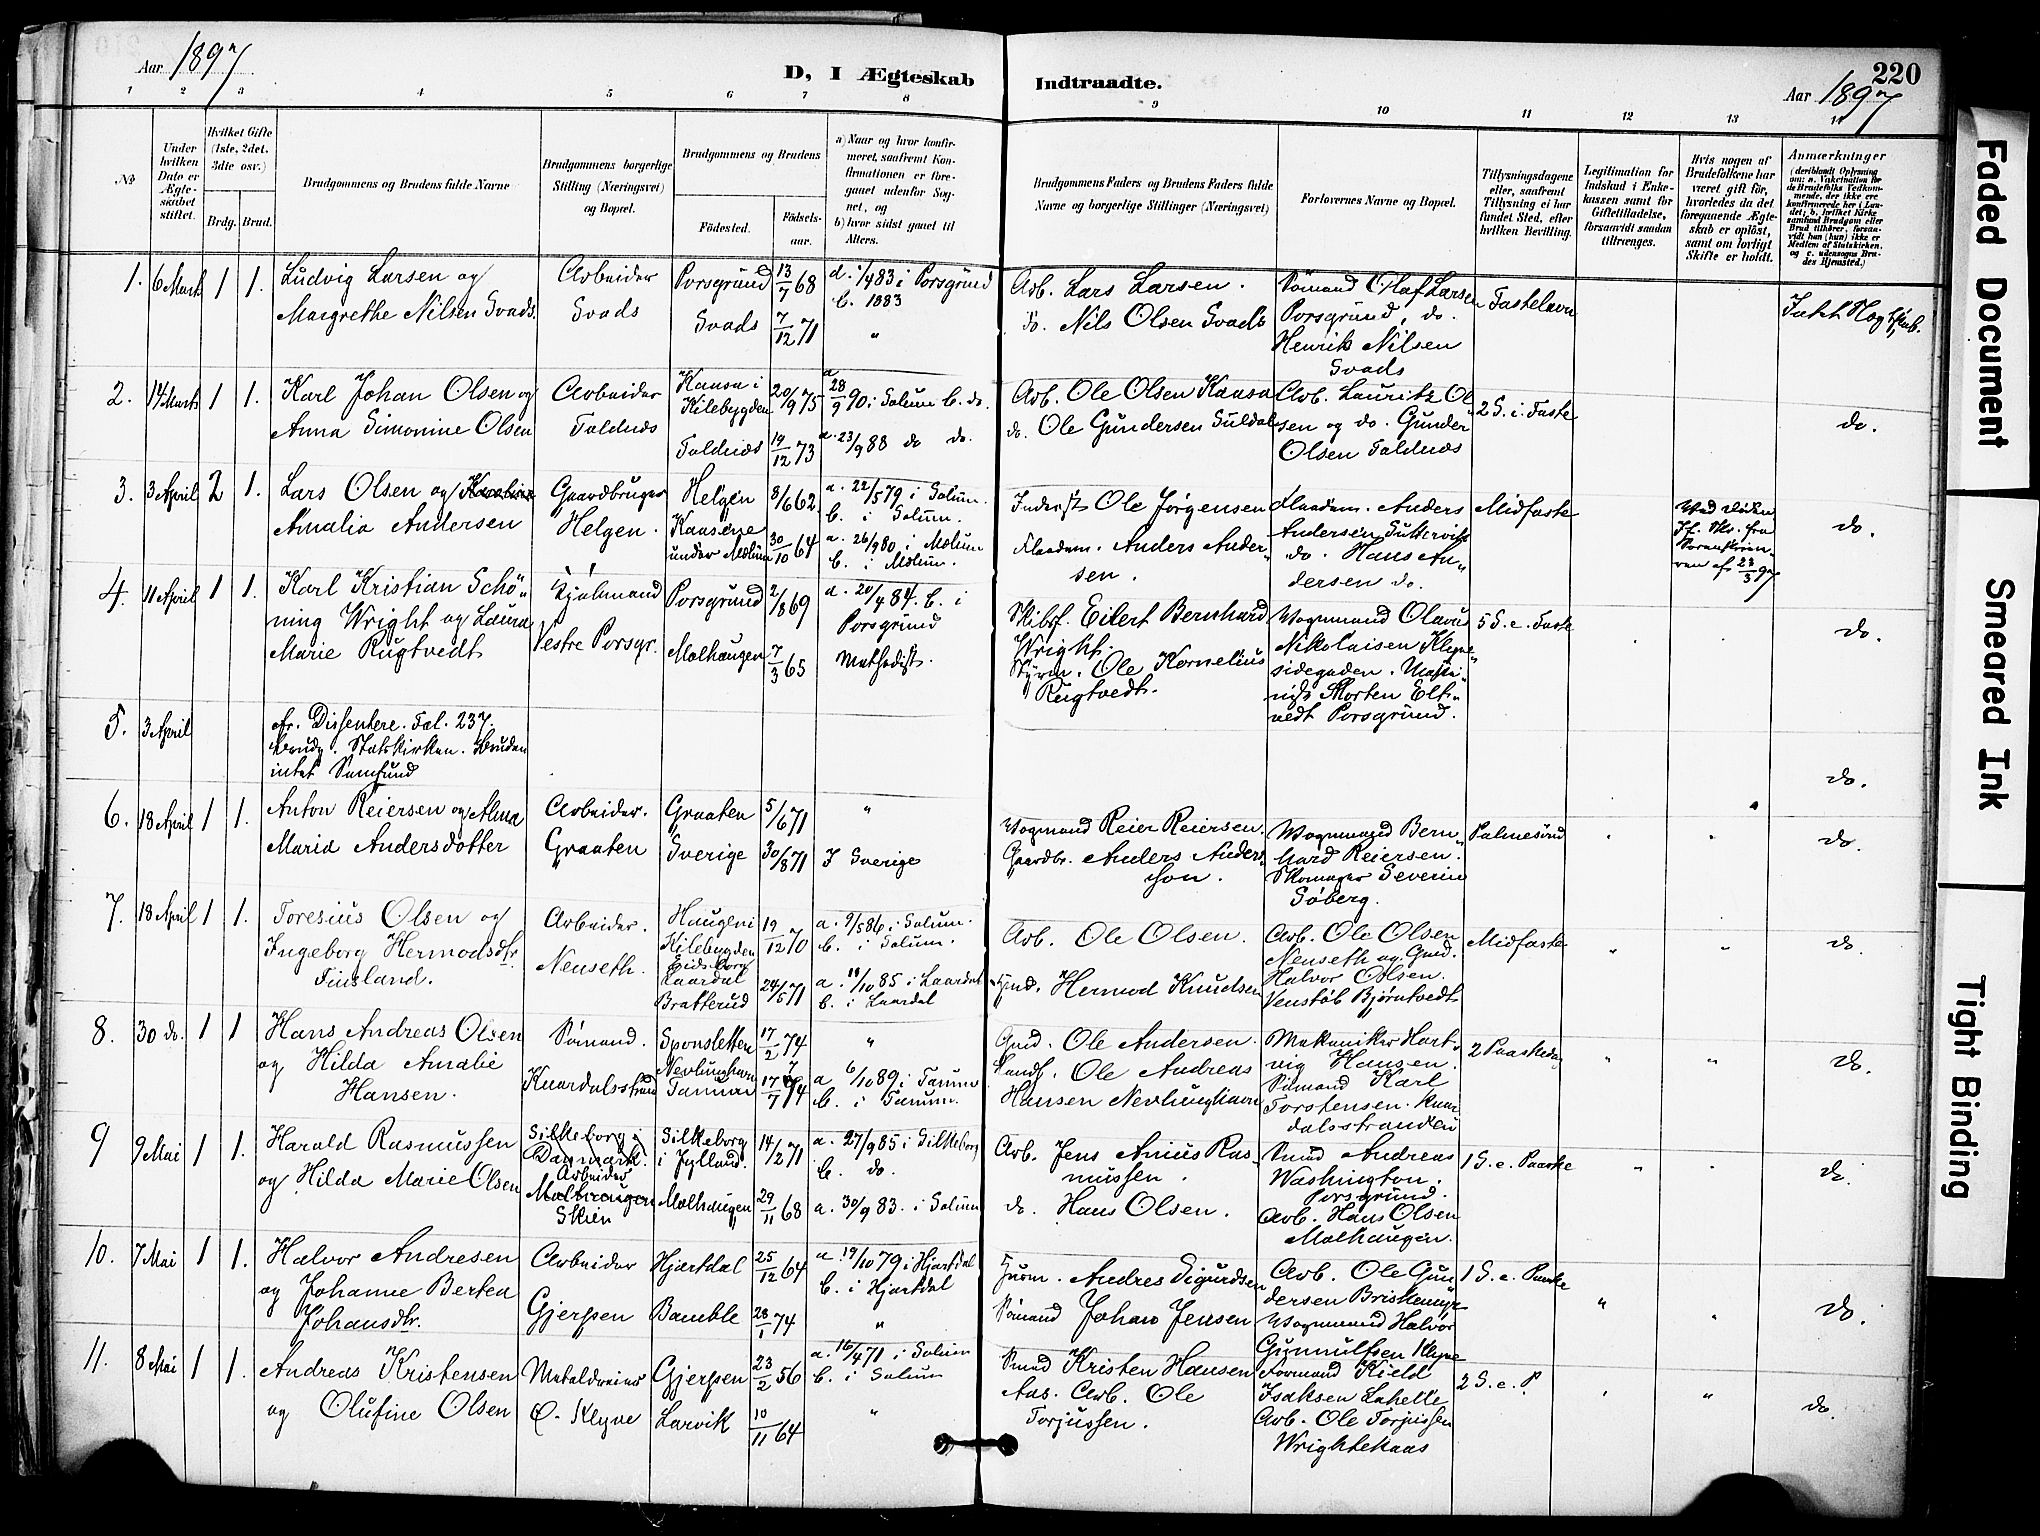 Aar 1897
D, I Ægteskab Indtraadte.
220
Aar 1897
1 2 3 4 5 6 7 8 9 10 11 12 13 14
No
Under hvilken Dato er Ægteskabet stiftet.
Hvilket Gifte (1ste, 2det, 3die osv.)
Brdg. Brud.
Brudgommens og Brudens fulde Navne
Brudgommens borgerlige Stilling (Næringsvei) og Bopæl.
Brudgommens og Brudens
Fødested. Fødselsaar.
a) Naar og hvor konfirmeret, saafremt Konfirmationen er foregaaet udenfor Sognet, og
b) hvor sidst gaaet til Alters.
Brudgommens Faders og Brudens Faders fulde Navne og borgerlige Stillinger (Næringsvei)
Forlovernes Navne og Bopæl.
Tillysningsdagene eller, saafremt Tillysning ei har fundet Sted, efter hvilken Bevilling.
Legitimation for Indskud i Enkekassen samt for Giftetilladelse, forsaavidt saadan tiltrænges.
Hvis nogen af Brudefolkene har været gift før, hvorledes da det foregaaende Ægteskab er opløst, samt om lovligt Skifte er holdt.
Anmærkninger (deriblandt Oplysning om: a. Vakcination for de Brudefolks Vedkommende, der ikke ere konfirmerede her i Landet; b. hvilket Kirkesamfund Brudgom eller Brud tilhører, forsaavidt han (hun) ikke er Medlem af Statskirken, og c. udensogns Brudes Hjemsted.)
1. 6 Marts 1 1. Ludvig Larsen og
Margrethe Nilsen Svads.
Arbeider
Svads
Porsgrund 13/7 68
Svads 7/12 71
a. 1/4 83 i Porsgrund
b. 1883
"
Arb. Lars Larsen.
do. Nils Olsen Svads
Sømand Olaf Larsen
Porsgrund, do.
Henrik Nilsen
Svads
Fastelavn
2. 14 Marts 1 1. Karl Johan Olsen og
Anna Simonine Olsen
Arbeider
Foldnæs
Kaasa i
Kilebygden 20/9 75
Foldnæs 19/12 73
a 28/9 90 i Solum b. do.
a. 23/9 88 do do.
Arb. Ole Olsen Kaasa
do. Ole Gundersen
Arb. Lauritz Ol
sen og do. Gunder
Olsen Foldnæs
2 S. i. Faste
do.
3. 3 April 2 1. Lars Olsen og Karoline
Amalia Andersen
Gaardbruger
Helgen.
Helgen 8/6 62
Kaasene
under Mælum 30/10 64
a. 22/5 79 i Solum.
b. i Solum.
a. 26/9 80 i Mælum
b. i Mælum.
Inderst Ole Jørgensen
Anders Ander"
sen.
Anders
Andersen
do. Hans An"
dersen do.
Midfaste
do.
4. 11 April 1 1. Karl Kristian Schö"
ning Wright og Laura
Marie Rugtvedt
Sjømand
Vestre Porsgr.
Porsgrund 2/8 69
Molhaugen 7/3 65
a. 20/4 84. b. i
Porsgrund
Methodist.
Skibsf. Eilert Bernhard
Wright.
Styrm. Ole Kornelius
Rugtvedt.
Vognmand Olaus
Nikolaisen Klyve"
sidegaden. Maski"
nist Morten Elt"
vedt Porsgrund.
5 S. e. Faste
do.
5. 3 April
fr. Dissentere. Fol. 237.
Brudg. Statskirken. Bruden
intet Samfund
do.
6. 18 April 1 1. Anton Reiersen og Alma
Maria Andersdotter
Arbeider.
Graaten
Graaten 5/6 71
Sverige 30/8 71
"
I Sverige
Vogmand Reier Reiersen.
Gaardbr. Anders Anders"
son.
Vognmand Bern"
hard Reiersen.
Skomager Severin
Søberg.
Palmesønd
do.
7. 18 April 1 1. Toresius Olsen og
Ingeborg Hermodsdtr
Finsland.
Arbeider.
Nenseth.
Haugen i
Kilebygden 19/12 70
Eidsborg
Laardal
Bratterud 24/5 71
a. 9/5 86 i Solum.
b. i Solum.
a. 18/10 85 i Laardal
b. i Laardal
Arb. Ole Olsen.
Gmd. Hermod Knudsen
Arb. Ole Olsen
Nenseth og Gmd.
Halvor Olsen.
Venstøb Bjørntvedt
Midfaste
do
8. 30 do. 1 1 Hans Andreas Olsen
og Hilda Amalie
Hansen.
Sømand.
Knardalsstrand
Sponsletten 17/2 74
Nevlunghavn
Tanum 17/7 74
"
a 6/10 89 i Tanum
b. i Tanum.
Gmd. Ole Andersen.
Ole Andreas
Hansen Nevlunghavn
Mekaniker Hart"
vig Hansen.
Sømand Karl
Torstensen. Knar
dalsstranden
2 Paaskedag
do.
9 9 Mai 1 1. Harald Rasmussen
og Hilda Marie Olsen
Silkeborg i
Danmark.
Arbeider
Molhaugen
Skien
Silkeborg
i Jylland. 14/2 71
Molhaugen 29/11 68
a. 27/9 85 i Silkeborg
b. do.
a. 30/9 83. i Solum
Arb. Jens Anius Ras"
mussen.
do. Hans Olsen.
Smed Andreas
Washington.
Porsgrund.
Arb. Hans Olsen
Molhaugen.
1 S. e. Paaske
do.
10. 7 Mai 1 1. Halvor Andresen
og Johanne Bertea
Johansdtr.
Arbeider
Gjerpen
Hjartdal 25/12 64
Bamble 28/1 74
a 19/10 79 i Hjartdal
b. i Hjartdal
"
Andres Sigurdsen
Sømand Johan Jensen
Arb. Ole Gun"
dersen Briskemyr
Vognmand Halvor
Gunnulfsen Klyve
1 S. e. Paaske
do.
11. 8 Mai 1 1. Andreas Kristensen
og Olufine Olsen
Metaldreier
Ø. Klyve
Gjerpen 23/2 56
Larvik 10/11 64
a. 16/4 71 i Solum
b. i Solum
"
Smed Kristen Hansen
Aas. Arb. Ole
Torjussen.
Formand Kield
Isaksen Lahelle
Arb. Ole Torjussen
Wrightekaas
2 S. e. P.
do.
Faded Document
Smeared Ink
Tight Binding